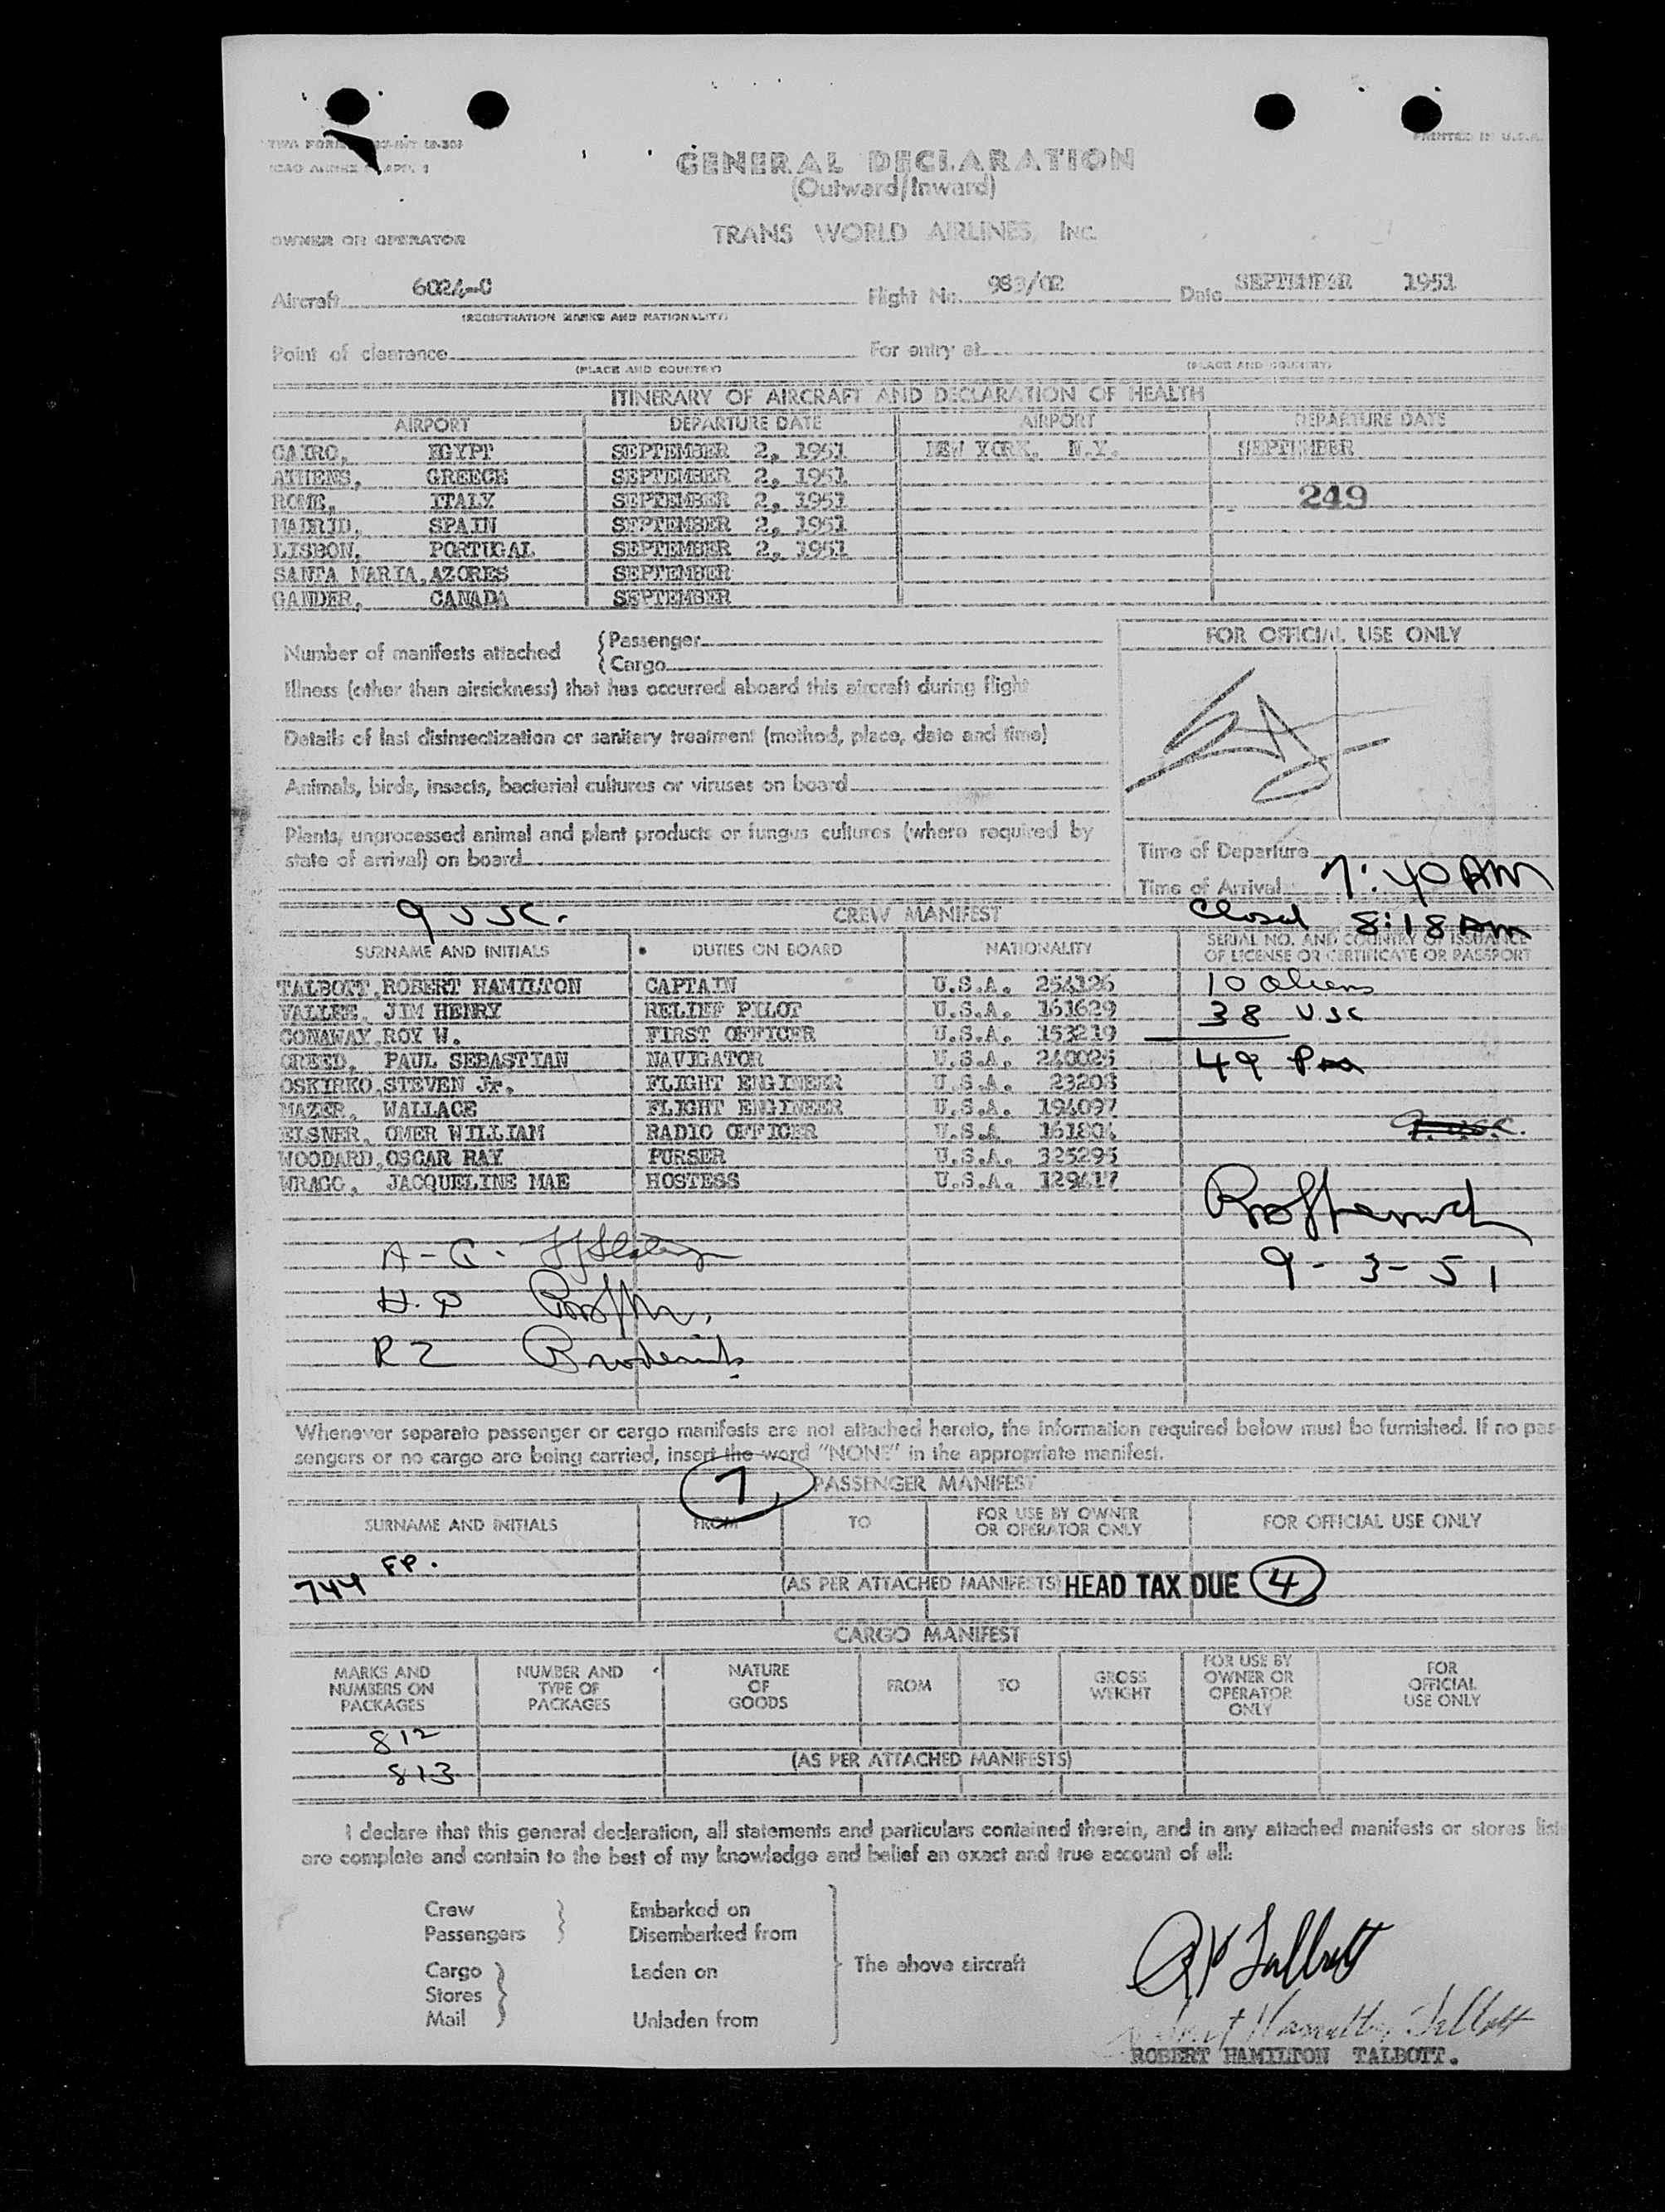 PRINTED IN U.S.A.
GENERAL DECLARATION
(Outward/Inward)
OWNER OR OPERATOR TRANS WORLD AIRLINES, Inc.
Aircraft 6024-C Flight No. Date SEPTEMBER 1951
(REGISTRATION MARKS AND NATIONALITY)
Point of clearance For entry at
(PLACE AND COUNTRY) (PLACE AND COUNTRY)
ITINERARY OF AIRCRAFT AND DECLARATION OF HEALTH
AIRPORT DEPARTURE DATE AIRPORT DEPARTURE DATE
CAIRO, EGYPT SEPTEMBER 2, 1951 NEW YORK, N.Y. SEPTEMBER
ATHENS, GREECE SEPTEMBER 2, 1951
ROME, ITALY SEPTEMBER 2, 1951 249
MADRID, SPAIN SEPTEMBER 2, 1951
LISBON, PORTUGAL SEPTEMBER 2, 1951
SANTA MARIA, AZORES SEPTEMBER
GANDER, CANADA SEPTEMBER
FOR OFFICIAL USE ONLY
Number of manifests attached { Passenger
{ Cargo
Illness (other than airsickness) that has occurred aboard this aircraft during flight
Details of last disinsectization or sanitary treatment (method, place, date and time)
Animals, birds, insects, bacterial cultures or viruses on board
Plants, unprocessed animal and plant products or fungus cultures (where required by
state of arrival) on board
Time of Departure
Time of Arrival 7:40 AM
9 USC. CREW MANIFEST Closed 8:18 AM
SURNAME AND INITIALS DUTIES ON BOARD NATIONALITY SERIAL NO. AND COUNTRY OF ISSUANCE
OF LICENSE OR CERTIFICATE OR PASSPORT
TALBOTT, ROBERT HAMILTON CAPTAIN U.S.A. 254326 10 Aliens
VALLEE, JIM HENRY RELIEF PILOT U.S.A. 161629 38 USC
CONAWAY, ROY W. FIRST OFFICER U.S.A. 153219
CREED, PAUL SEBASTIAN NAVIGATOR U.S.A. 240025 49
OSKIRKO, STEVEN Jr. FLIGHT ENGINEER U.S.A.
MAZER, WALLACE FLIGHT ENGINEER U.S.A. 194097
ELSNER, OMER WILLIAM RADIO OFFICER U.S.A 161804
WOODARD, OSCAR RAY PURSER U.S.A. 325295
WRAGG, JACQUELINE MAE HOSTESS U.S.A. 129417
A-C.
9-3-51
H.P
R2
Whenever separate passenger or cargo manifests are not attached hereto, the information required below must be furnished. If no pas-
sengers or no cargo are being carried, insert the word "NONE" in the appropriate manifest.
7. PASSENGER MANIFEST
SURNAME AND INITIALS FROM TO FOR USE BY OWNER
OR OPERATOR ONLY FOR OFFICIAL USE ONLY
744 FP.
(AS PER ATTACHED MANIFESTS) HEAD TAX DUE 4
CARGO MANIFEST
MARKS AND
NUMBERS ON
PACKAGES NUMBER AND
TYPE OF
PACKAGES NATURE
OF
GOODS FROM TO GROSS
WEIGHT FOR USE BY
OWNER OR
OPERATOR
ONLY FOR
OFFICIAL
USE ONLY
812
(AS PER ATTACHED MANIFESTS)
813
I declare that this general declaration, all statements and particulars contained therein, and in any attached manifests or stores lists
are complete and contain to the best of my knowledge and belief an exact and true account of all:
Crew Embarked on
Passengers Disembarked from
Cargo Laden on The above aircraft
Stores
Mail Unladen from
R H Talbott
Robert Hamilton Talbott
ROBERT HAMILTON TALBOTT.